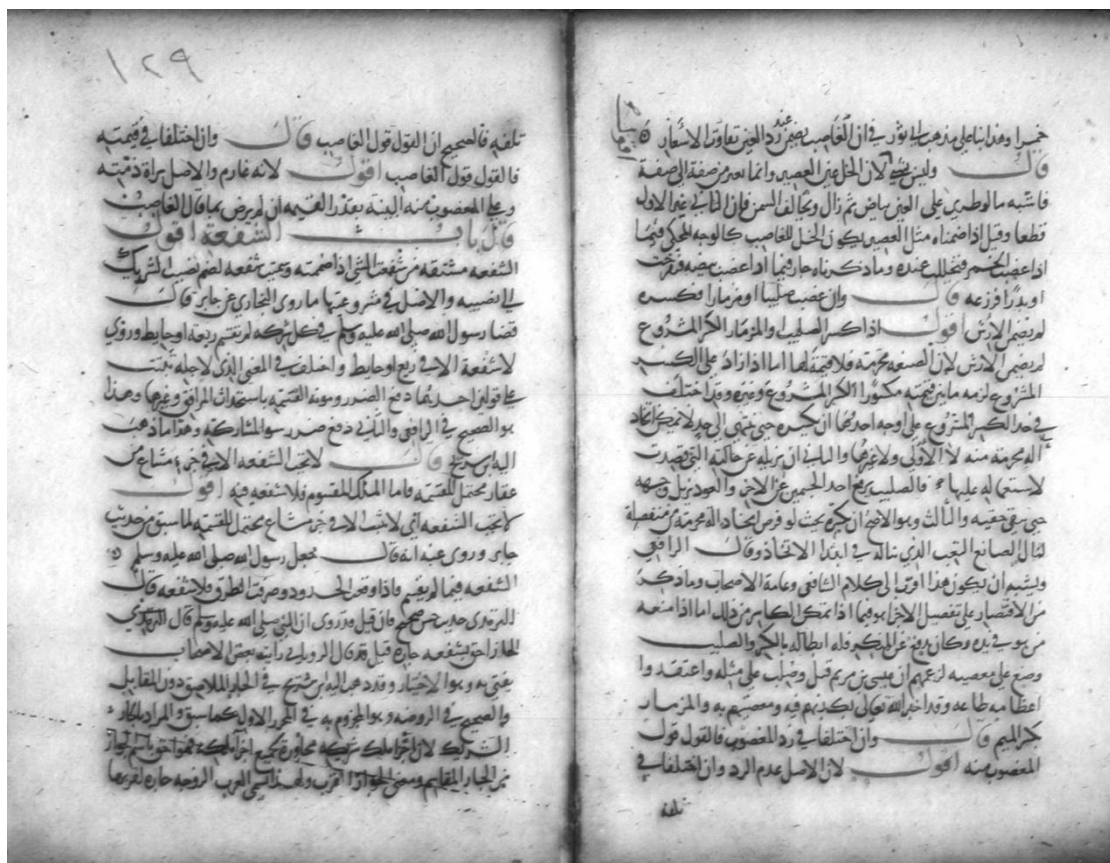 خمرا وهذا بناء على مذهب ابي ثور في ان الغاصب يضمن عند رد العين تفاوت الاسعار
قال وليس بشيء لان الخل عين العصير وانما تغير من صفة الى صفة
فاشبه ما لو طرى على العين بياض ثم زال ويخالف السمن فان الثاني غير الاول
قطعا وقيل اذا ضمناه مثل العصير يكون الخل للغاصب كالوجه المحكي فيما
اذا غصب الخمر فتخللت عنده وما ذكرناه جار فيما اذا غصب بيضه ففرخت
او بذرا فزرعه قال وان غصب صليبا او مزمارا فكسره
لم يضمن الارش اقول اذا كسر الصليب والمزمار الكسر المشروع
لم يضمن الارش لان الصنعه محرمة فلا قيمة لها اما اذا زاد على الكسر
المشروع لزمه ما بين قيمته مكسورا الكسر المشروع وغيره وقد اختلف
في حد الكسر المشروع على اوجه احدها ان يكسره حتى ينتهي الى حد لا يمكن اتخاذ
اله محرمة منه لا الاولى ولا غيرها والثاني ان يزيله عن حالته التي قصدت
لاستعماله عليها فالصليب يرفع احد الخشبتين عن الاخرى والعود يزيل وجهه
حتى يبقى كقصعة والثالث وهو الاصح ان يكسره بحيث لو فرض اتخاذ اله محرمة من منفصله
لنال الصانع التعب الذي يناله في ابتدا الاتخاذ وقال الرافعي
ويشبه ان يكون هذا اقرب الى كلام الشافعي وعامة الاصحاب وما ذكر
من الاقتصار على تفصيل الاجزا هو فيما اذا تمكن الكاسر من ذلك اما اذا منعه
من هو في يده وكان يدفع عن المنكر فله ابطاله بالكسر والصليب
وضع على معصيه لزعمهم ان عيسى بن مريم قتل وصلب على مثله واعتقدوا
اعظامه طاعه وقد اخبر الله تعالى بكذبهم فيه ومعصيتهم به والمزمار
بكسر الميم قال وان اختلفا في رد المغصوب فالقول قول
المغصوب منه اقول لان الاصل عدم الرد وان اختلفا في
تلفه
١٢٩
تلفه فالصحيح ان القول قول الغاصب قال وان اختلفا في قيمته
فالقول قول الغاصب اقول لانه غارم والاصل براة ذمته
وعلى المغصوب منه البينة بقدر القيمه ان لم يرض بما قال الغاصب
قال باب الشفعة اقول
الشفعه مشتقه من شفعت الشي اذا ضممته وسميت شفعه لضم نصيب الشريك
الى نصيبه والاصل في مشروعيتها ما روى البخاري عن جابر قال
قضا رسول الله صلى الله عليه وسلم في كل شركه لم تقسم ربعة او حايط وروي
لا شفعة الا في ربع او حايط واختلف في المعنى الذي لاجله ثبتت
على قولين احدهما دفع الضرر ومونة القسمة باستحداث المرافق وغيرها وهذا
هو الصحيح في الرافعي والثاني دفع ضرر سو المشاركه وهذا ما ذهب
اليه ابن سريج قال لا تجب الشفعه الا في جزء مشاع من
عقار محتمل للقسمة فاما الملك المقسوم فلا شفعه فيه اقول
لا تجب الشفعه اي لا تثبت الا في جزء مشاع محتمل للقسمة لما سبق من حديث
جابر وروى عنه انه قال جعل رسول الله صلى الله عليه وسلم
الشفعه فيما لم يقسم فاذا وقعت الحدود وصرفت الطرق فلا شفعه قال
الترمذي حديث حسن صحيح فان قيل قد روى ان النبي صلى الله عليه وسلم قال
الجار احق بشفعه جاره قيل قد قال الروياني رايت بعض الاصحاب
يفتي به وهو الاختيار وقد ذهب اليه ابن سريج في الجار الملاصق دون المقابل
والصحيح في الروضه وهو المجزوم به في المحرر الاول كما سبق والمراد بالجار
الشريك لان اجزا ملك شريكه مجاورة لجميع اجزا ملكه فهو احق باسم الجوار
من الجار المقاسم ومعنى الجوار القرب ولهذا تسمي العرب الزوجه جاره لقربها